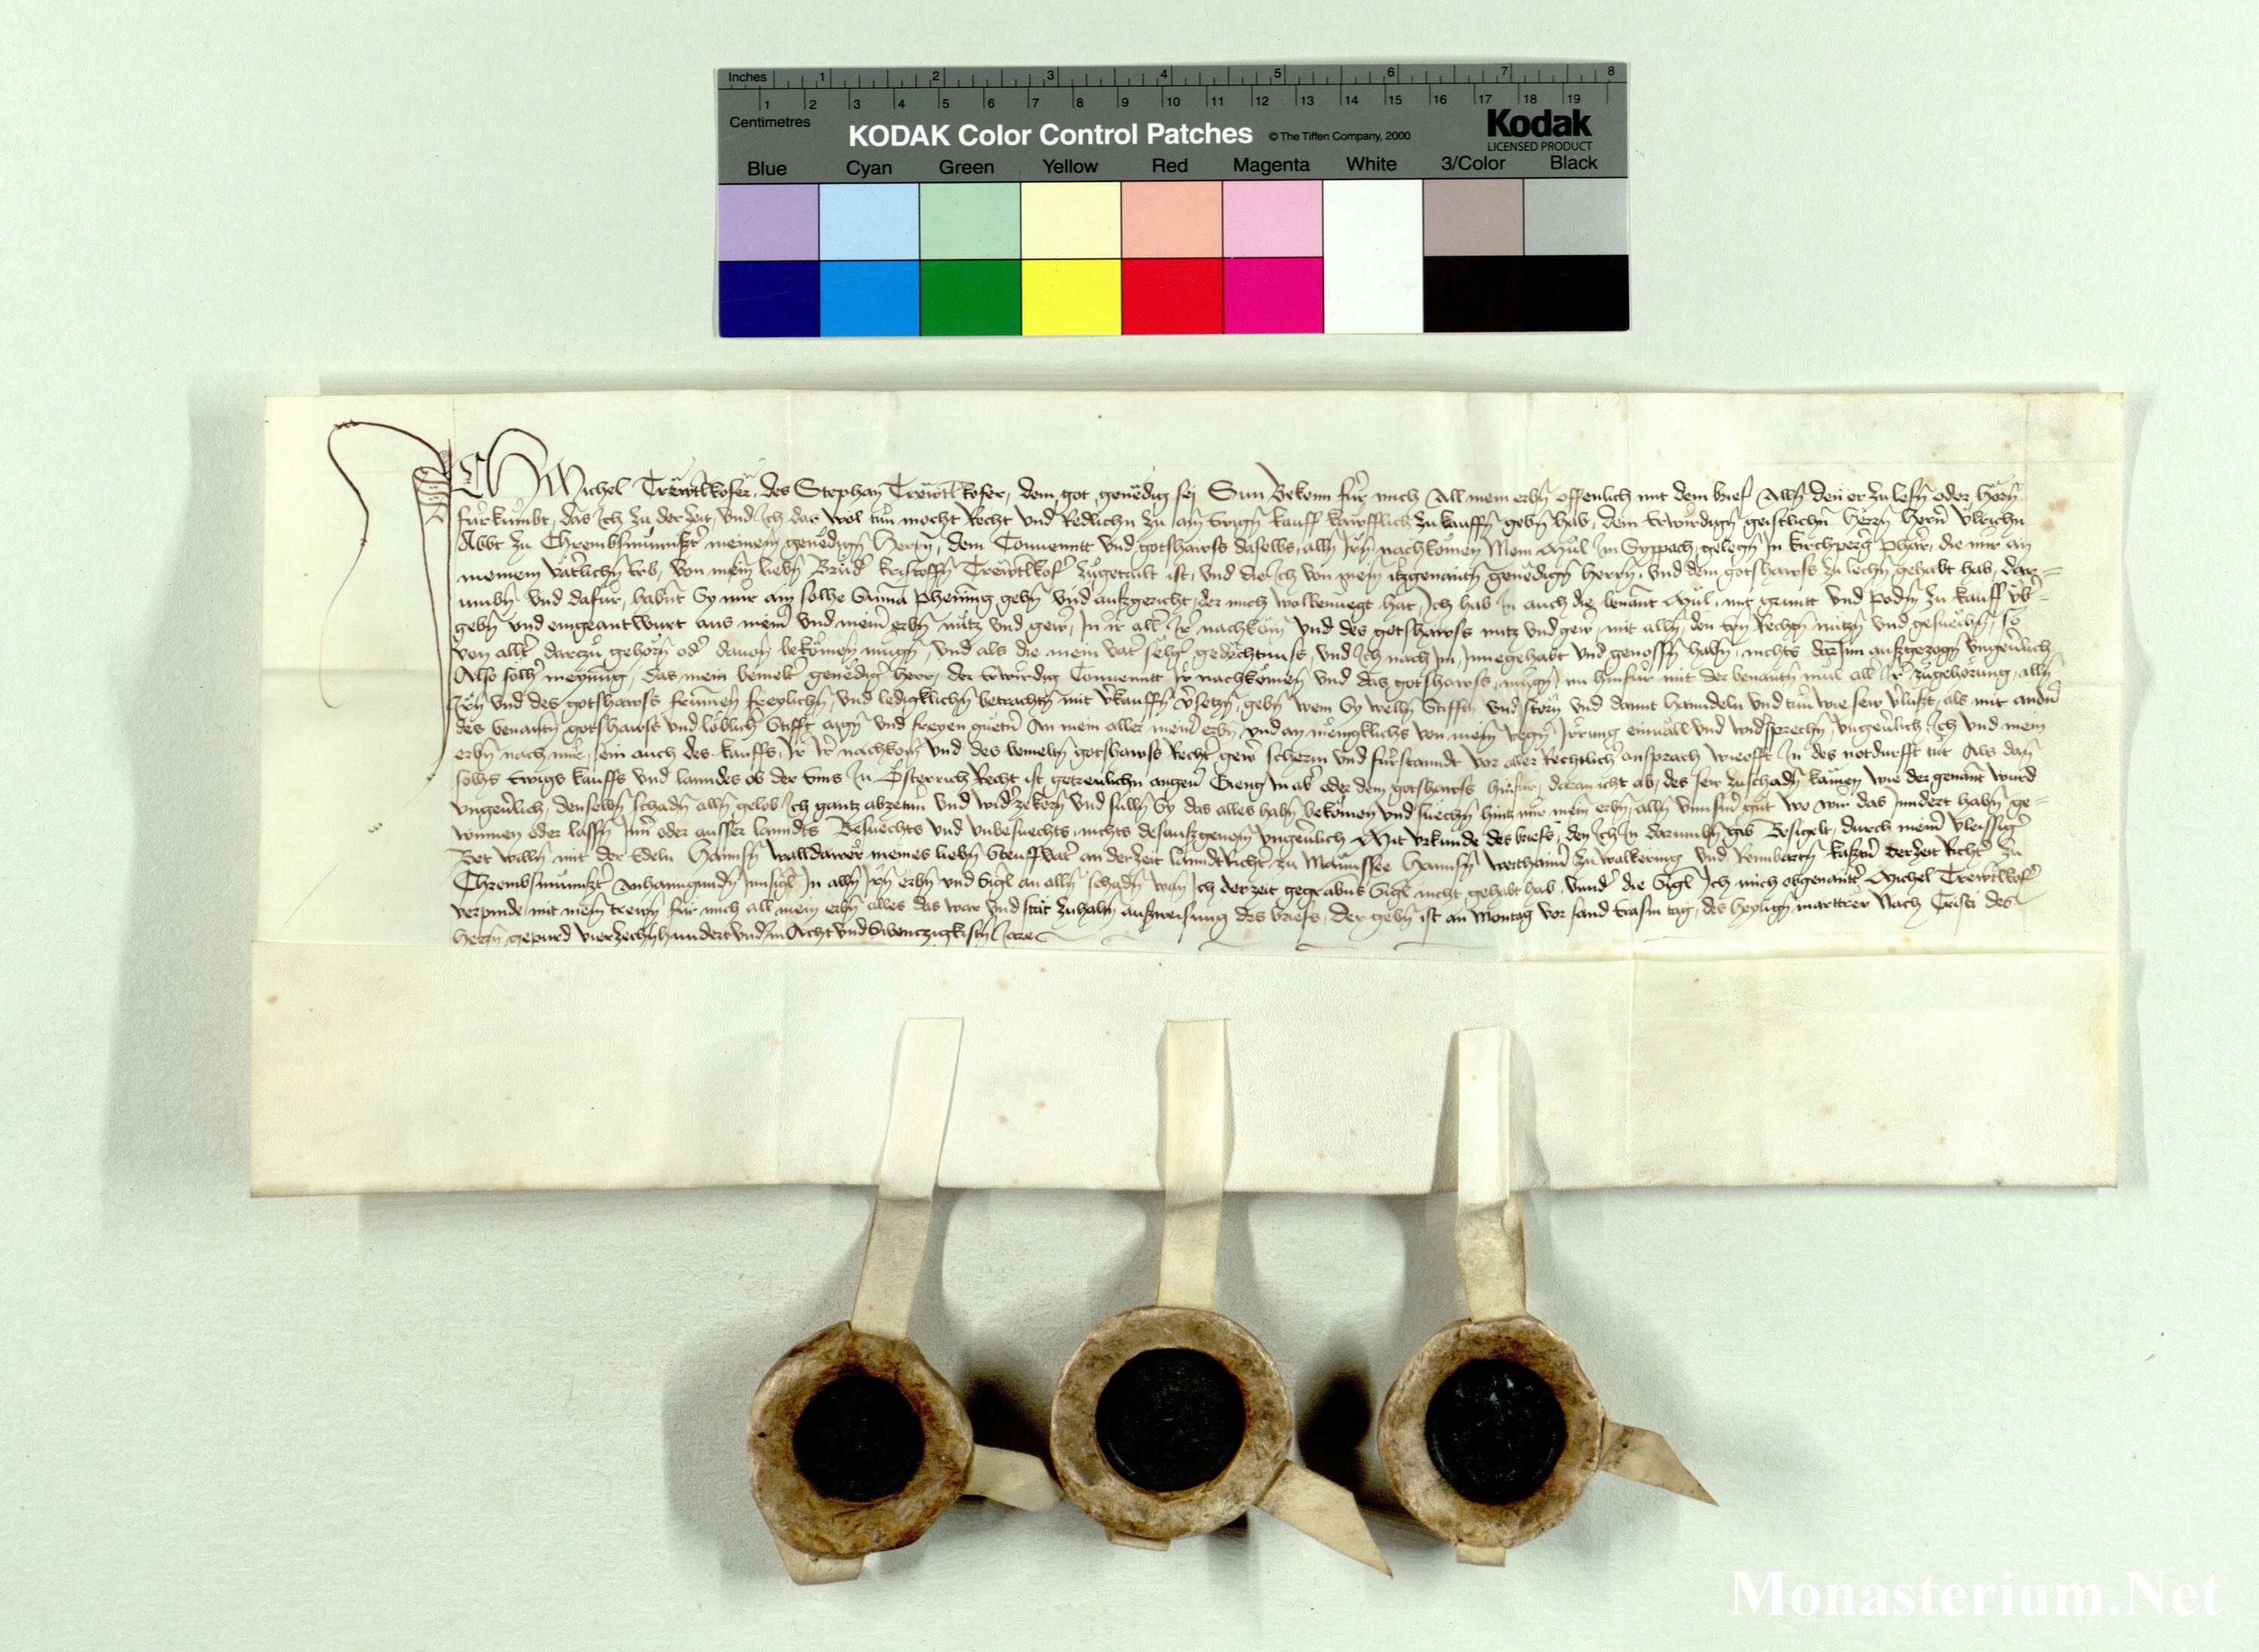 Inches 1 2 3 4 5 6 7 8
1 2 3 4 5 6 7 8 9 10 11 12 13 14 15 16 17 18 19
Centimetres
KODAK Color Control Patches © The Tiffen Company, 2000
Kodak
LICENSED PRODUCT
Blue Cyan Green Yellow Red Magenta White 3/Color Black
Ich Michel Trewtlkofer, des Stephan Trewtlkofer, dem got genedig sej Sun Bekenn für mich All mein erbn offenlich mit dem brief Allen den er zu lesn oder hörn
fürkumbt, das Ich zu der zeit, und Ich das wol tun mocht Recht und Redlichn zu ain ewign kauff kawfflich zu kauffn gebn hab, dem Erwirdign geistlichn herrn hern Ulrichn
Abbt zu Chrembsmunster meinem genedign herrn, dem Conuenntt und gotshawss daselbs, alln Irn nachkomen Mein Mül Im Syppach, gelegn In kirchperger Pharr, die mir an
meinem väterlichn erb, von mein liebn Brud kristoffn Trewtlkofer zugetailt ist, und die Ich von mein genedign herrn, und dem gotshawss zu lechn gehabt hab, dar=
umbn und dafür, habnt Sy mir ain solhe Summa phening gebn und ausgericht, der mich wolbenuegt hat, Ich hab In auch die benant Mül, mit grunt und Podn zu kauff üb=
gebn und eingeantwurt aus meiner und meiner erbn nutz und gewer, In ir all Ir nachkomen und des gotshawss nutz und gewer, mit alln den Rechtn nutzn und gesuechn, so
von allter darczu gehörn oder davon bekomen mugn, und als die mein vater selig gedechtnuss, und Ich nach Im Innegehabt und genossn habn, nichts darInn ausgezogn ungeuerlich
Also solher maynung, das mein bemelter genediger herr, der Erwirdig Conuenntt Ir nachkomen und das gotshawss, mugn nu hinfur mit der benantn mül aller Ir zugehörung, alln
Irn und des gotshawss frumen freylichn, und ledigklichn betrachtn mit verkauffn versetzn, gebn wem Sy welln Stifftn und störn und damit hanndeln und tun wie sew verlust, als mit andern
des benantn gotshawss und löblicher Stifft aign und freyen guetern An mein aller meiner erbn und an menigklichs von mein wegn Irrung einuäll und widersprechn, ungeuerlich, Ich und mein
erbn nach mir, sein auch des kauffs, Ir Ir nachkomen und des bemeltn gotshawss Recht gewer scherm und fürstanndt vor aller Rechtlicher ansprach wie offt In des notdurfft tut Als dan
solhs ewigs kauffs und lanndes ob der Enns In Österrich Recht ist getreulichn an geuer Gieng In aber oder dem gotshawss hinfur, daran icht ab, des sew zu schadn kämen wie der genant wurd
ungeuerlich, denselbn schadn alln gelob Ich gantz abzetun und widerzekern und sulln Sy das alles habn bekomen und suechn hintz mir mein erbn, alln unnserm gut wo wir das Inndert habn ge=
wunnen oder lassn Inner oder ausser lanndts Besuechts und unbesuechts, nichts desausgenomen ungeuerlich Mit Urkunde des briefs, den Ich In darumbn gib Besigelt, durch meiner vleissiger
Bet willn mit der Edeln Hannsn walldawer meines liebn Steuffvater an der zeit lanndtRichter zu Mannssee Hannsn zu walkering und Reinbartn der zeit Richter zu
Chrembsmunster Anhanngundn Innsigl In alln Irn erbn und Sigl an alln schadn wan Ich der zeit gegrabns Sigl nicht gehabt hab, Under die Sigl Ich mich obgenanter Michel Trewtlkofer
verpinde, mit mein trewn für mich all mein erbn alles das war und stät zuhaltn ausweisung des briefs, Der gebn ist an Montag vor sand Erasm tag, des heyligen marttrer Nach Cristi des
herrn gepurd vierzechnhundert und Im Acht und Sibenczigkistn Jare
Monasterium.Net